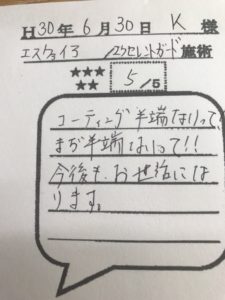 H30年6月30日 K 様
エスクァイア /エクセレントガード施術
★★★
★★
5/5
コーティング半端ないって、
まぢ半端ないって!!
今後も、お世話にな
ります。